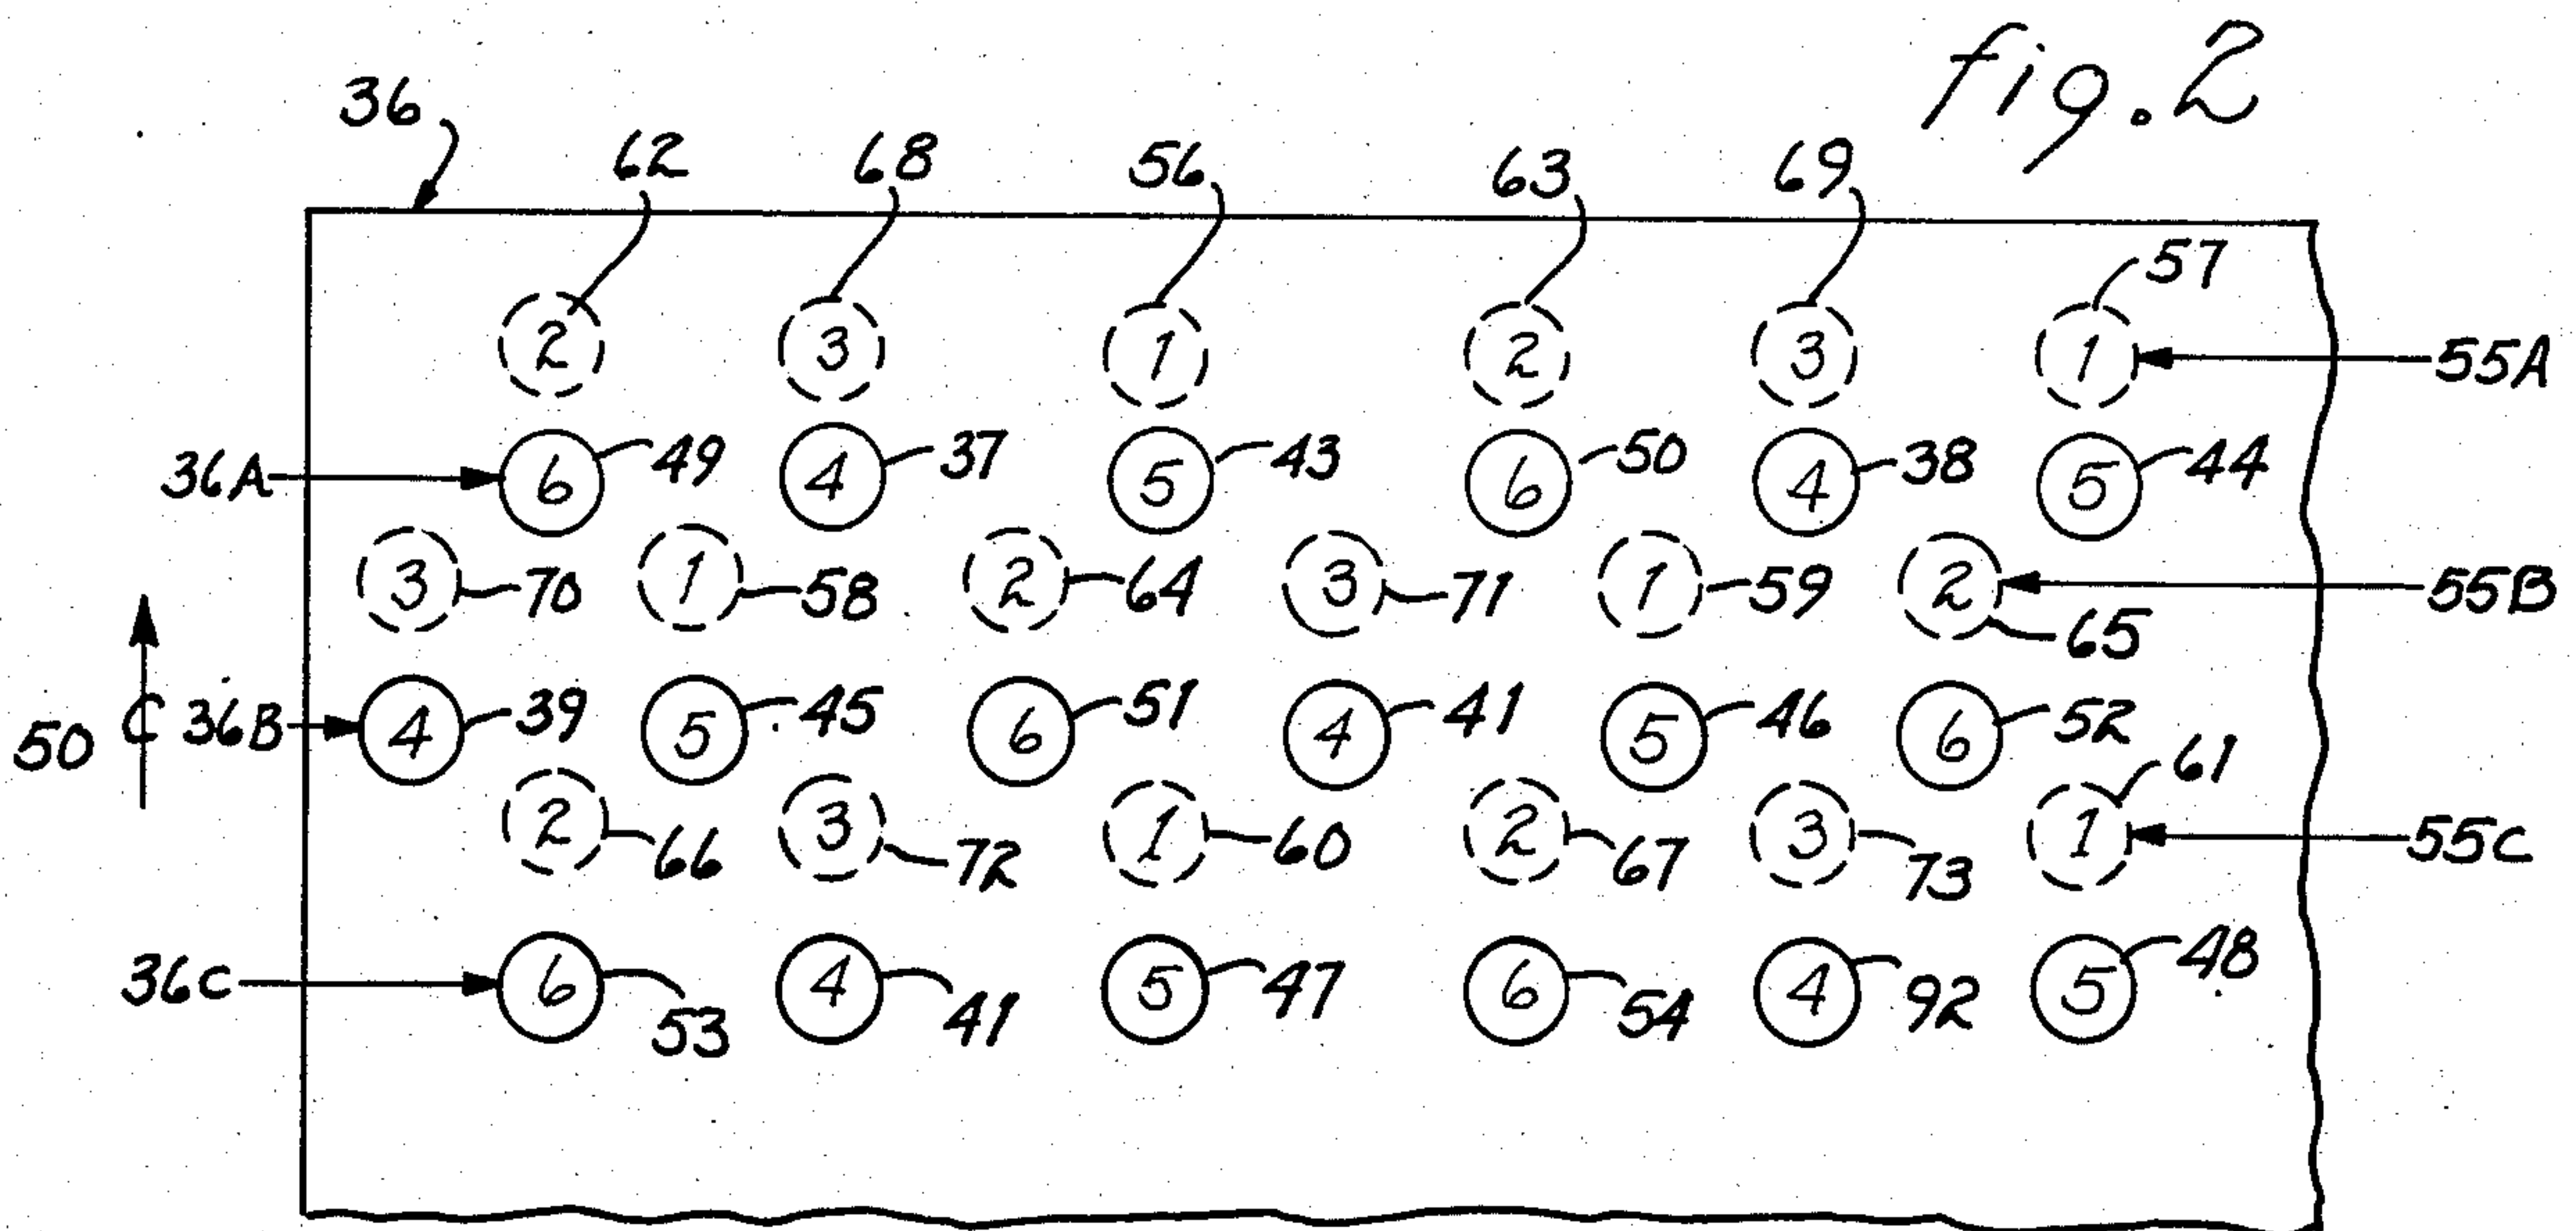 fig. 2
36 62 68 56 63 69
57
2 3 1 2 3 1 55A
36A 6 49 4 37 5 43 6 50 4 38 5 44
3 70 1 58 2 64 3 71 1 59 2 65 55B
50 36B 4 39 5 45 6 51 4 41 5 46 6 52
61
2 66 3 72 1 60 2 67 3 73 1 55C
36C 6 53 4 41 5 47 6 54 4 92 5 48